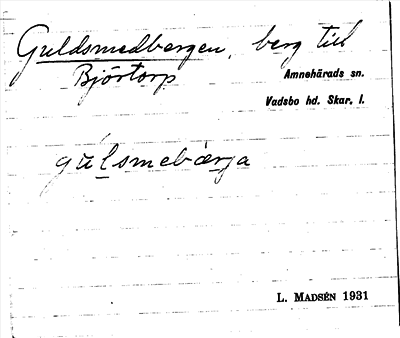 Guldsmedbergen, berg till
Björtorp
Amnehärads sn.
Vadsbo hd. Skar. l.
gúlsmebærja
L. MADSÉN 1931